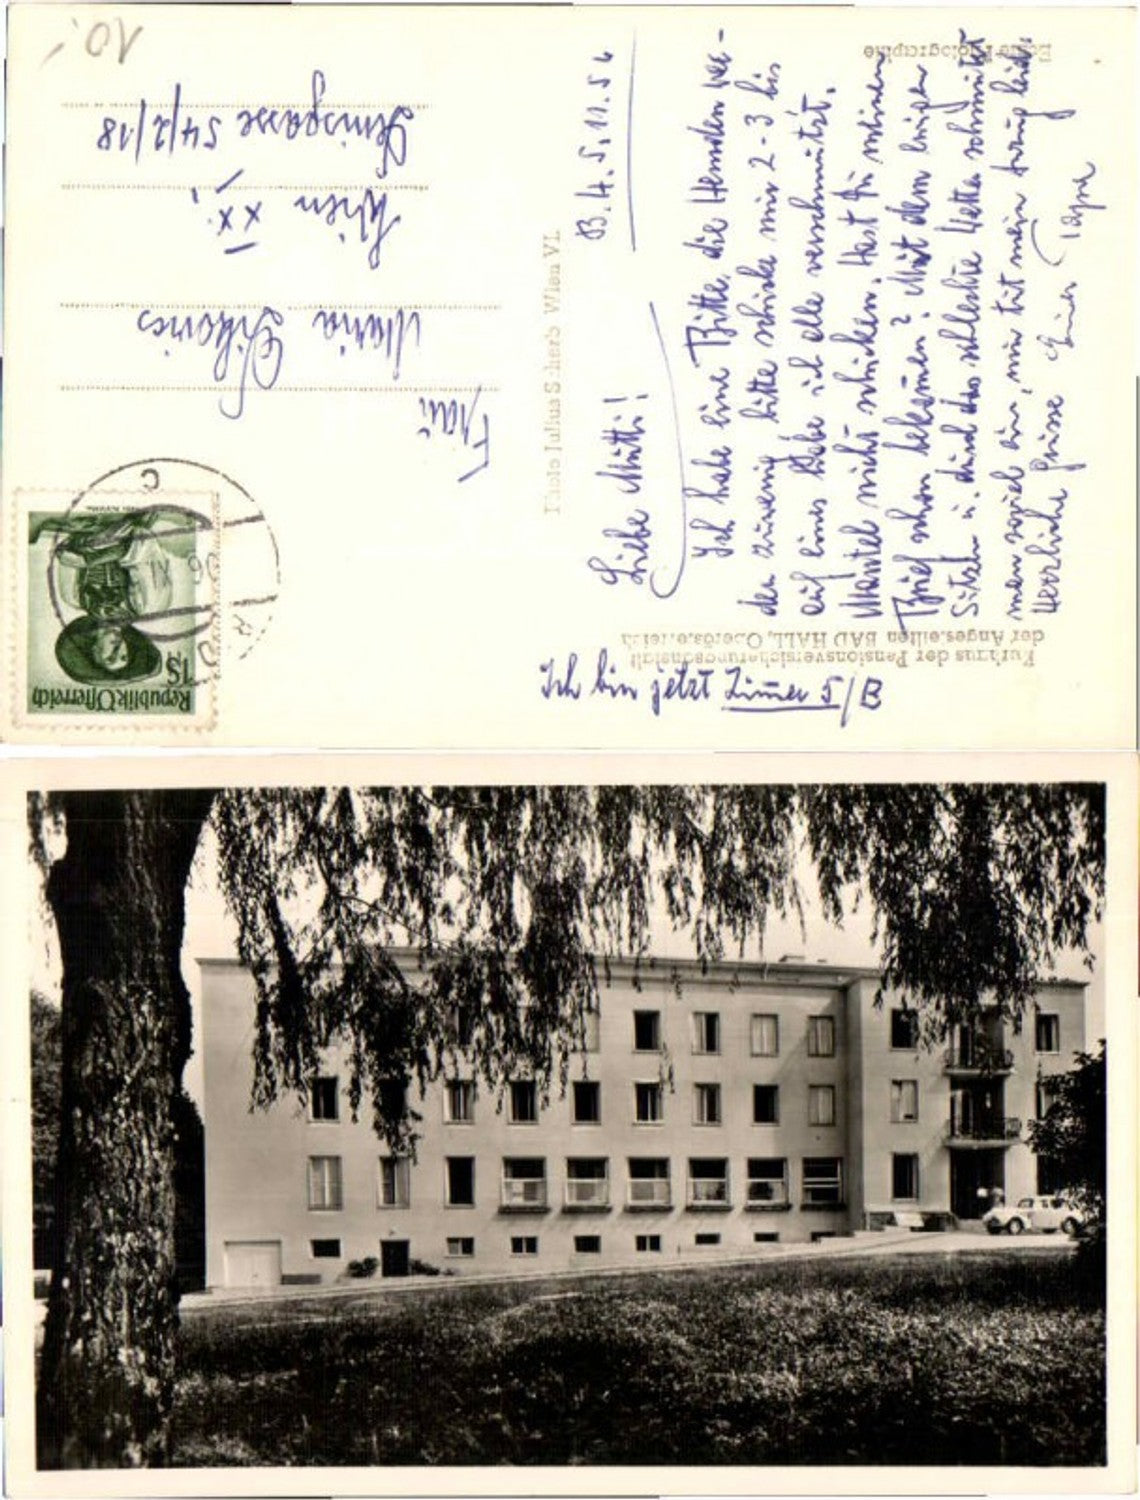 10.-
Echte Photographie
B. H. 5. 11. 56
Liebe Mutti!
Ich habe eine Bitte, die Hemden wer-
den zuwenig bitte schicke mir 2-3 bis
auf eines habe ich alle verschmutzt.
Mantel nicht schicken. Hast Du meinen
Brief schon bekommen? Mit dem
Sitzen u. durch das schlechte Wetter
man soviel ein, mir tut mein
Herzliche Grüsse Euer
Ich bin jetzt Zimmer 5/B
Kurhaus der Pensionsversicherungsanstalt
der Angestellten BAD HALL, Oberösterreich
Photo Julius Scherb Wien VI.
Frau
Maria
Wien XX.,
54/2/18
Republik Österreich
1S